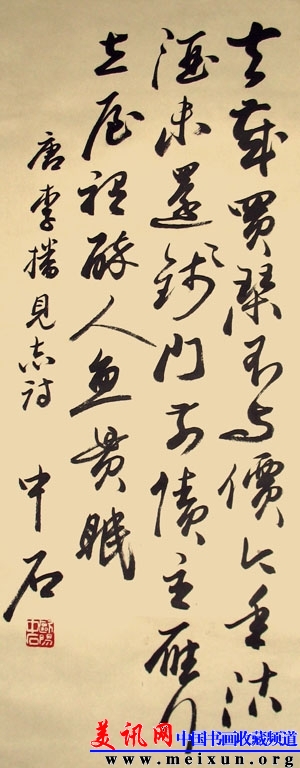 去歲買琴不与價今年沽
酒未還錢門前債主雁行
立屋裡醉人魚貫眠
唐李播見志詩
中石
歐陽中石
美讯网 中国书画收藏频道
www.meixun.org